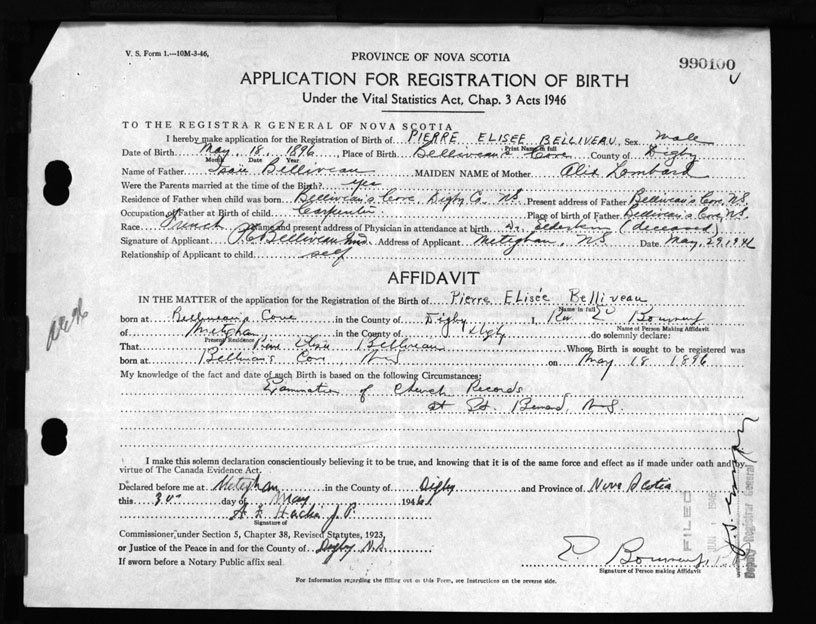 V. S. Form 1.—10M-3-46,
PROVINCE OF NOVA SCOTIA
990100
APPLICATION FOR REGISTRATION OF BIRTH
Under the Vital Statistics Act, Chap. 3 Acts 1946
TO THE REGISTRAR GENERAL OF NOVA SCOTIA
I hereby make application for the Registration of Birth of PIERRE ELISEE BELLIVEAU Sex Male
Print Name in full
Date of Birth May 18, 1896 Place of Birth Belliveau's Cove County of Digby
Month Date Year
Name of Father Belliveau MAIDEN NAME of Mother Lombard
Were the Parents married at the time of the Birth? yes
Residence of Father when child was born Belliveau's Cove, Digby Co. N.S. Present address of Father Belliveau's Cove, N.S.
Occupation of Father at Birth of child Carpenter Place of birth of Father Belliveau's Cove, N.S.
Race French Name and present address of Physician in attendance at birth Dr. (deceased)
Signature of Applicant P. E. Belliveau Address of Applicant Meteghan, N.S. Date May, 29, 1946
Relationship of Applicant to child self
AFFIDAVIT
IN THE MATTER of the application for the Registration of the Birth of Pierre Elisée Belliveau
Name in full
born at Belliveau's Cove in the County of Digby I,
Name of Person Making Affidavit
of Meteghan in the County of Digby do solemnly declare:
Present Residence
That Belliveau Whose Birth is sought to be registered was
born at Belliveau's Cove N.S. on May 18 1896
My knowledge of the fact and date of such Birth is based on the following Circumstances:
Examination of Church Records
at St. Bernard, N.S.
I make this solemn declaration conscientiously believing it to be true, and knowing that it is of the same force and effect as if made under oath and by
virtue of The Canada Evidence Act.
Declared before me at Meteghan in the County of Digby and Province of Nova Scotia
this day of May 1946
J. P.
Signature of
Commissioner, under Section 5, Chapter 38, Revised Statutes, 1923,
or Justice of the Peace in and for the County of Digby N.S.
If sworn before a Notary Public affix seal
Signature of Person making Affidavit
For Information regarding the filling out of this Form, see Instructions on the reverse side.
FILED
Deputy Registrar General